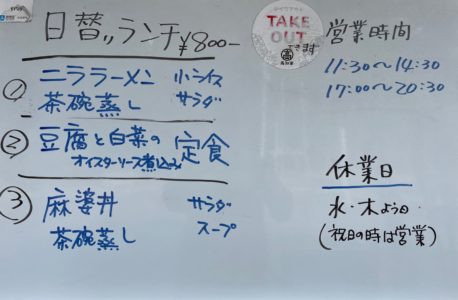 日替〃ランチ ¥800-
① ニララーメン 小ライス
茶碗蒸し サラダ
② 豆腐と白菜の 定食
オイスターソース煮込み
③ 麻婆丼 サラダ
茶碗蒸し スープ
テイクアウト
TAKE
OUT
できます
営業時間
11:30〜14:30
17:00〜20:30
休業日
水・木よう日
(祝日の時は営業)